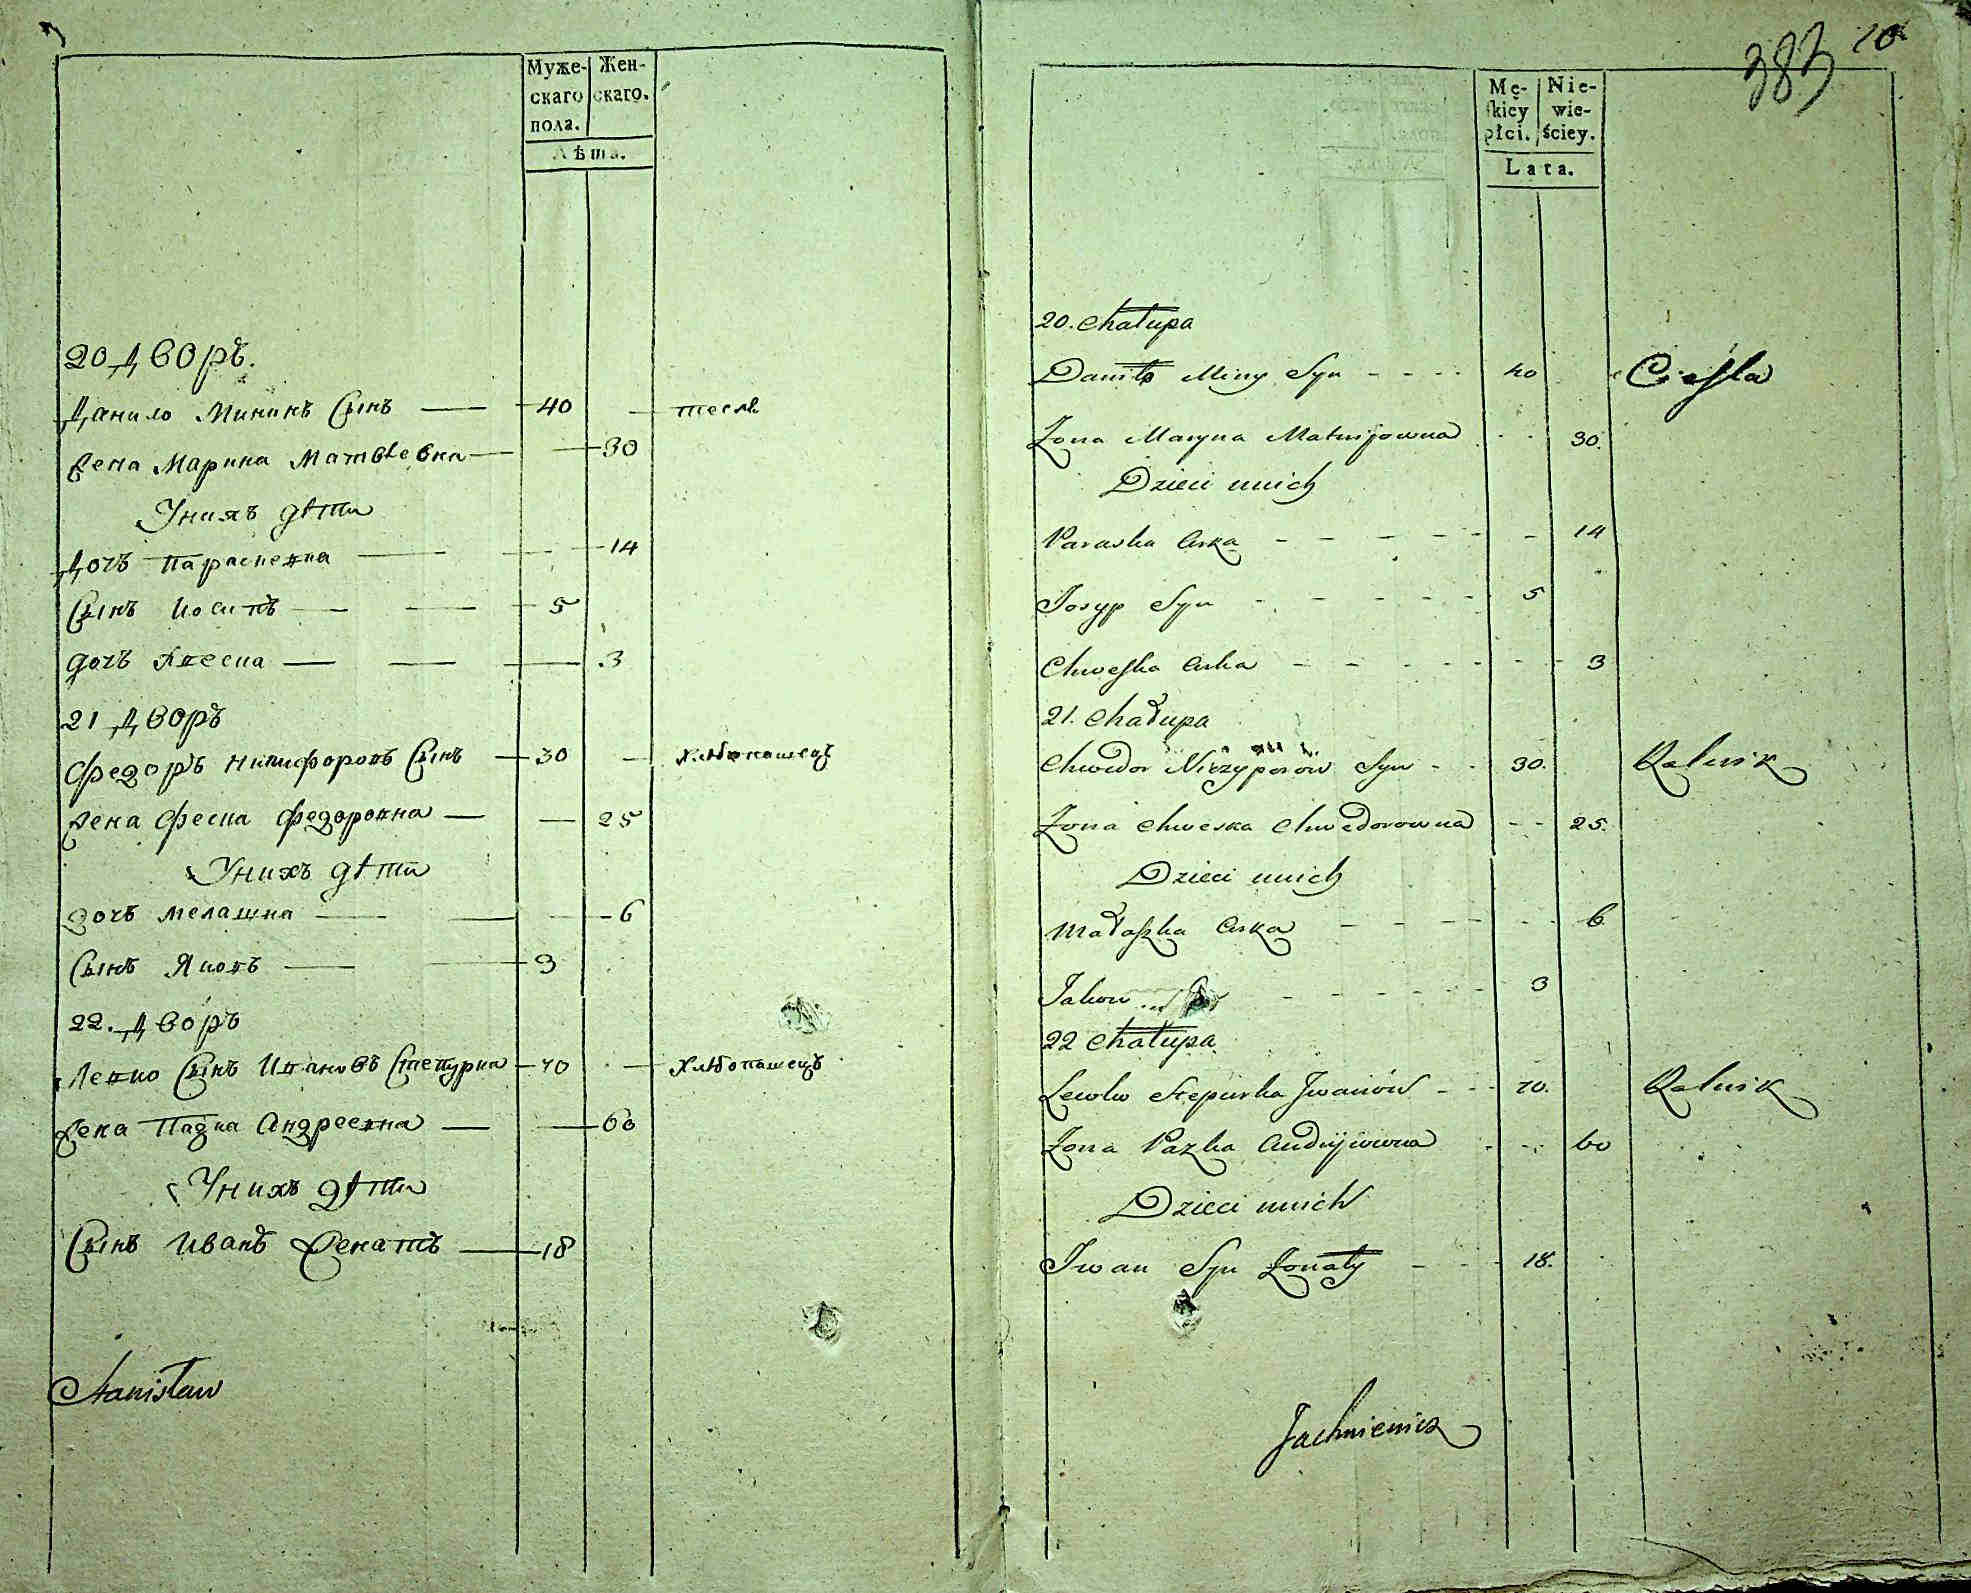 Муже-
скаго
пола.
Жен-
скаго.
Лѣта.
20 Дворъ.
Данило Мининъ Сынъ — 40 — тесля
Жена Марина Матвѣевна — 30
У нихъ дѣти
Дочь Парасковна — 14
Сынъ Иосипъ — 5
дочь Хвеска — 3
21 Дворъ
Федоръ Никифоровъ Сынъ — 30 — хлѣбопашецъ
Жена Феска Федоровна — 25
У нихъ дѣти
дочь Мелашка — 6
Сынъ Яковъ — 3
22. Дворъ
Левко Сынъ Ивановъ Степурка — 70 — Хлѣбопашецъ
Жена Пазка Андреевна — 60
У нихъ дѣти
Сынъ Иванъ Женатъ — 18
Stanisław
383 10
Mę-
skiey
płci.
Nie-
wie-
ściey.
Lata.
20. Chałupa
Daniło Miny Syn - - - - 40 Cieśla
Żona Maryna Matwijowna - - 30.
Dzieci u nich
Paraska Curka - - - - - - 14
Josyp Syn - - - - - 5
Chweska Curka - - - - - - 3
21. Chałupa
Chwedor Niczyporów Syn - - 30. Rolnik
Żona Chweska Chwedorowna - - 25.
Dzieci u nich
Małaszka Curka - - - - - 6
Jakow - - - - - 3
22 Chałupa
Lewko Stepurka Iwanów - - - 70. Rolnik
Żona Pazka Andryjowna - - - 60
Dzieci u nich
Iwan Syn Żonaty - - - 18.
Jachniewicz